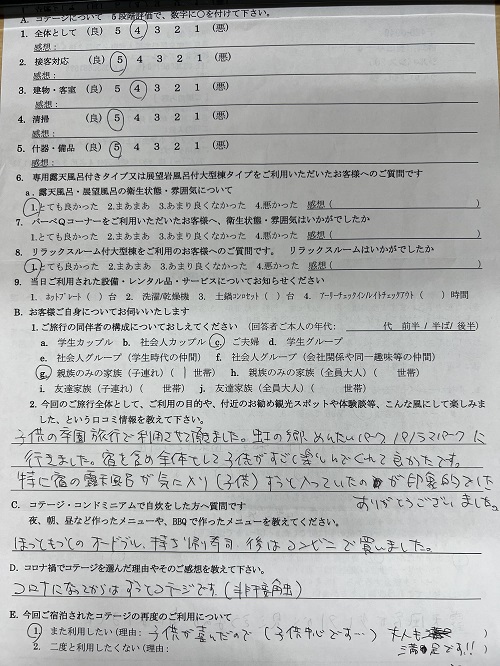 A. コテージについて 5段階評価で、数字に○を付けて下さい。
1. 全体として (良) 5 4 3 2 1 (悪)
感想:
2. 接客対応 (良) 5 4 3 2 1 (悪)
感想:
3. 建物・客室 (良) 5 4 3 2 1 (悪)
感想:
4. 清掃 (良) 5 4 3 2 1 (悪)
感想:
5. 什器・備品 (良) 5 4 3 2 1 (悪)
感想:
6. 専用露天風呂付きタイプ又は展望岩風呂付大型棟タイプをご利用いただいたお客様へのご質問です
a. 露天風呂・展望風呂の衛生状態・雰囲気について
1.とても良かった 2.まあまあ 3.あまり良くなかった 4.悪かった 感想( )
7. バーベQコーナーをご利用いただいたお客様へ、衛生状態・雰囲気はいかがでしたか
1.とても良かった 2.まあまあ 3.あまり良くなかった 4.悪かった 感想( )
8. リラックスルーム付大型棟をご利用のお客様へのご質問です。 リラックスルームはいかがでしたか
1.とても良かった 2.まあまあ 3.あまり良くなかった 4.悪かった 感想( )
9. 当日ご利用された設備・レンタル品・サービスについてお知らせください
1. ホットプレート( )台 2. 洗濯/乾燥機 3. 土鍋コンロセット( )台 4. アーリーチェックイン/レイトチェックアウト( )時間
B. お客様ご自身についてお伺いいたします
1. ご旅行の同伴者の構成についておしえてください (回答者ご本人の年代: 代 前半/半ば/後半)
a. 学生カップル b. 社会人カップル c. ご夫婦 d. 学生グループ
e. 社会人グループ(学生時代の仲間) f. 社会人グループ(会社関係や同一趣味等の仲間)
g. 親族のみの家族(子連れ)( 1 世帯) h. 親族のみの家族(全員大人)( 世帯)
i. 友達家族(子連れ)( 世帯) j. 友達家族(全員大人)( 世帯)
2. 今回のご旅行全体として、ご利用の目的や、付近のお勧め観光スポットや体験談等、こんな風にして楽しみました、という口コミ情報を教えて下さい。
子供の卒園旅行で利用させて頂きました。虹の郷、めんたいパーク パノラマパークに
行きました。宿を含め全体として子供がすごく楽しんでくれて良かったです。
特に宿の露天風呂が気に入り(子供)ずっと入っていたのが印象的でした
ありがとうございました。
C. コテージ・コンドミニアムで自炊をした方へ質問です
夜、朝、昼など作ったメニューや、BBQで作ったメニューを教えてください。
ほっともっとのオードブル、持ち帰り寿司、後はコンビニで買いました。
D. コロナ禍でコテージを選んだ理由やそのご感想を教えて下さい。
コロナになってからはずっとコテージです(非接触)
E. 今回ご宿泊されたコテージの再度のご利用について
1. また利用したい(理由: 子供が喜んだので(子供中心です…) 大人も
満足です!! )
2. 二度と利用したくない(理由: